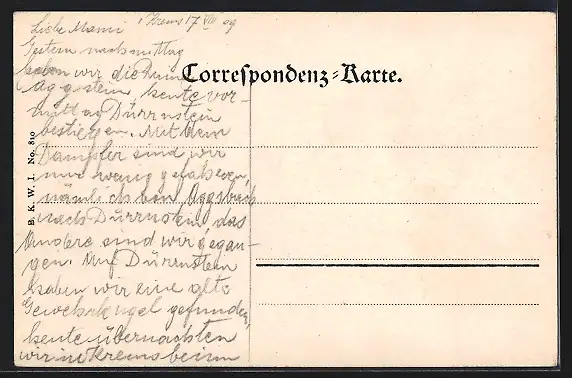 Krems 17 VIII 09
Liebe Mami
Gestern nachmittag
haben wir die Ruine
Aggstein heute vor-
mittag Dürrnstein
bestiegen. Mit dem
Dampfer sind wir
nur wenig gefahren,
nämlich von Aggsbach
nach Dürrnstein das
Andere sind wir gegan-
gen. Auf Dürrnstein
haben wir eine alte
Gewehrkugel gefunden,
heute übernachten
wir in Krems beim
Correspondenz-Karte.
B. K. W. I. No. 810